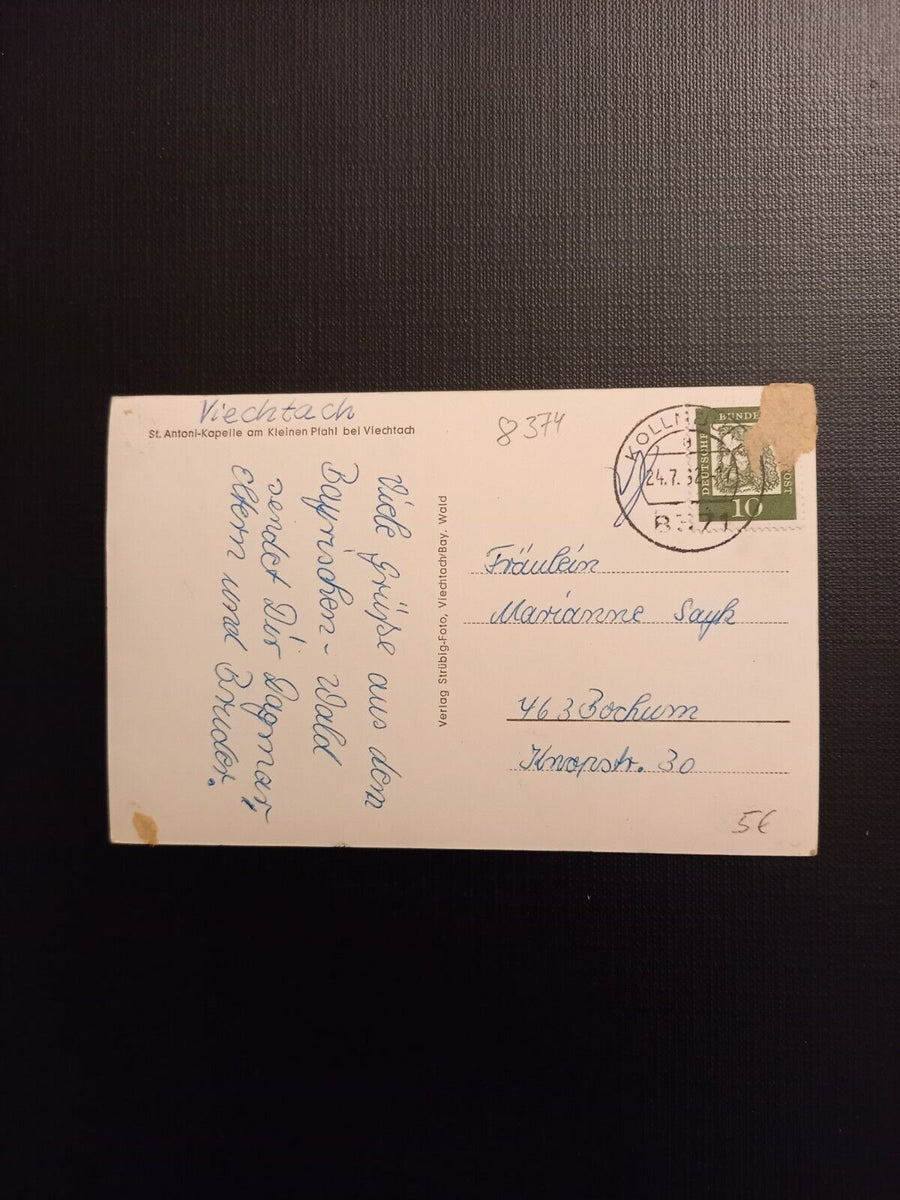 Viechtach
St. Antoni-Kapelle am Kleinen Pfahl bei Viechtach
Viele Grüße aus dem
Bayrischen-Wald
sendet Dir Dagmar,
Eltern und Bruder.
Verlag Strübig-Foto, Viechtach/Bay. Wald
8374
24.7.62
DEUTSCHE
10
Fräulein
Marianne Sayk
463 Bochum
Knopstr. 30
5€